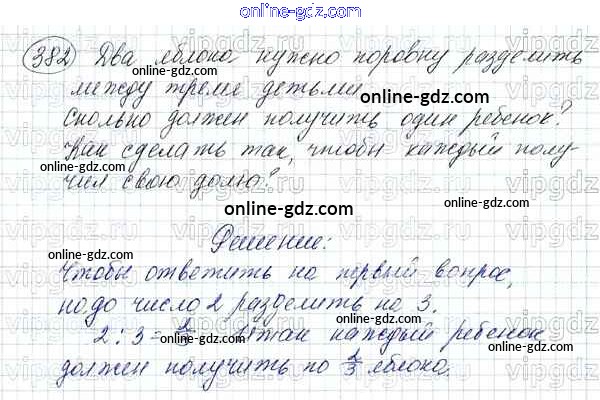 online-gdz.com
382 Два яблока нужно поровну разделить
между тремя детьми.
online-gdz.com
online-gdz.com
Сколько должен получить один ребенок?
Как сделать так, чтобы каждый полу-
чил свою долю?
online-gdz.com
online-gdz.com
Решение:
online-gdz.com
Чтобы ответить на первый вопрос,
надо число 2 разделить на 3.
online-gdz.com
2 : 3 = 2/3 Итак каждый ребенок
должен получить по 2/3 яблока.
online-gdz.com
online-gdz.com